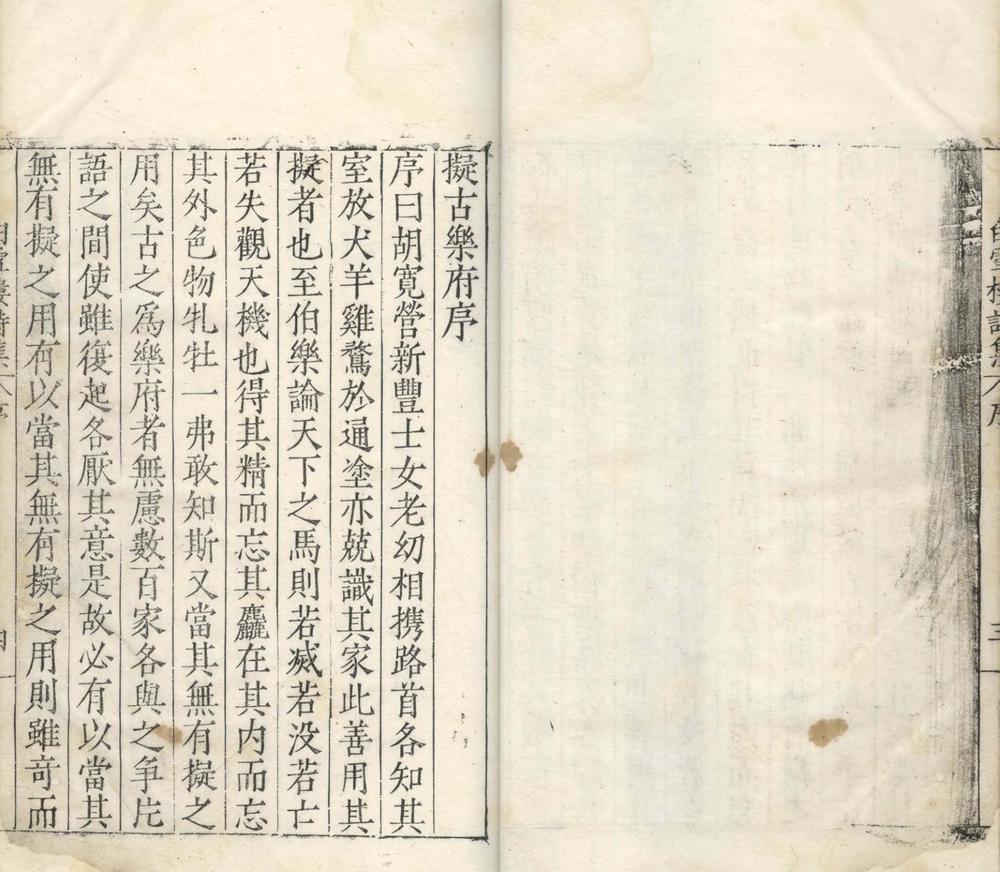 白雪樓詩集 序
三
擬古樂府序
序曰胡寬營新豐士女老幼相携路首各知其
室放犬羊雞鶩於通塗亦兢識其家此善用其
擬者也至伯樂論天下之馬則若滅若没若亡
若失觀天機也得其精而忘其麤在其内而忘
其外色物牝牡一弗敢知斯又當其無有擬之
用矣古之爲樂府者無慮數百家各與之争片
語之間使雖復起各厭其意是故必有以當其
無有擬之用有以當其無有擬之用則雖奇而
白雪樓詩集 序
四